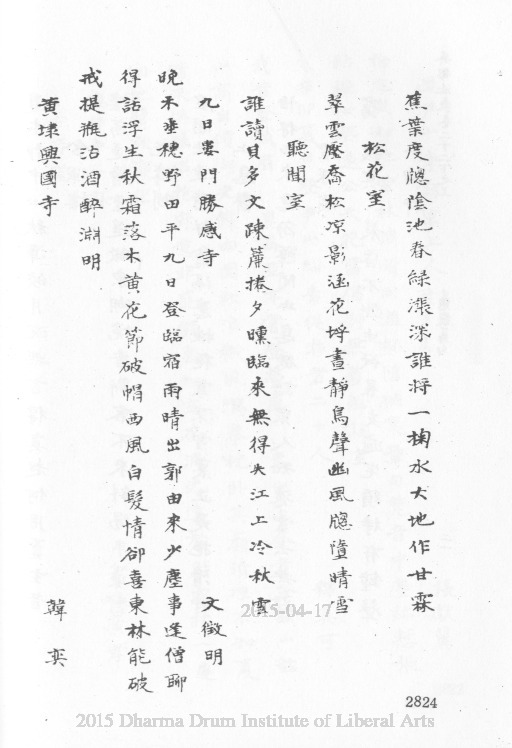 蕉葉度牕陰池春綠漲深誰將一掬水大地作甘霖
松花室
翠雲壓喬松凉影涵花塢晝靜鳥聲幽風牕墮晴雪
聽聞室
誰讀貝多文踈簾捲夕曛臨來無得失江上冷秋雲
九日婁門勝感寺 文徵明
晚禾垂穗野田平九日登臨宿雨晴出郭由來少塵事逢僧聊
得話浮生秋霜落木黃花節破帽西風白髮情卻喜東林能破
戒提瓶沽酒醉淵明
黃埭興國寺 韓奕
2824
2015-04-17
2015 Dharma Drum Institute of Liberal Arts